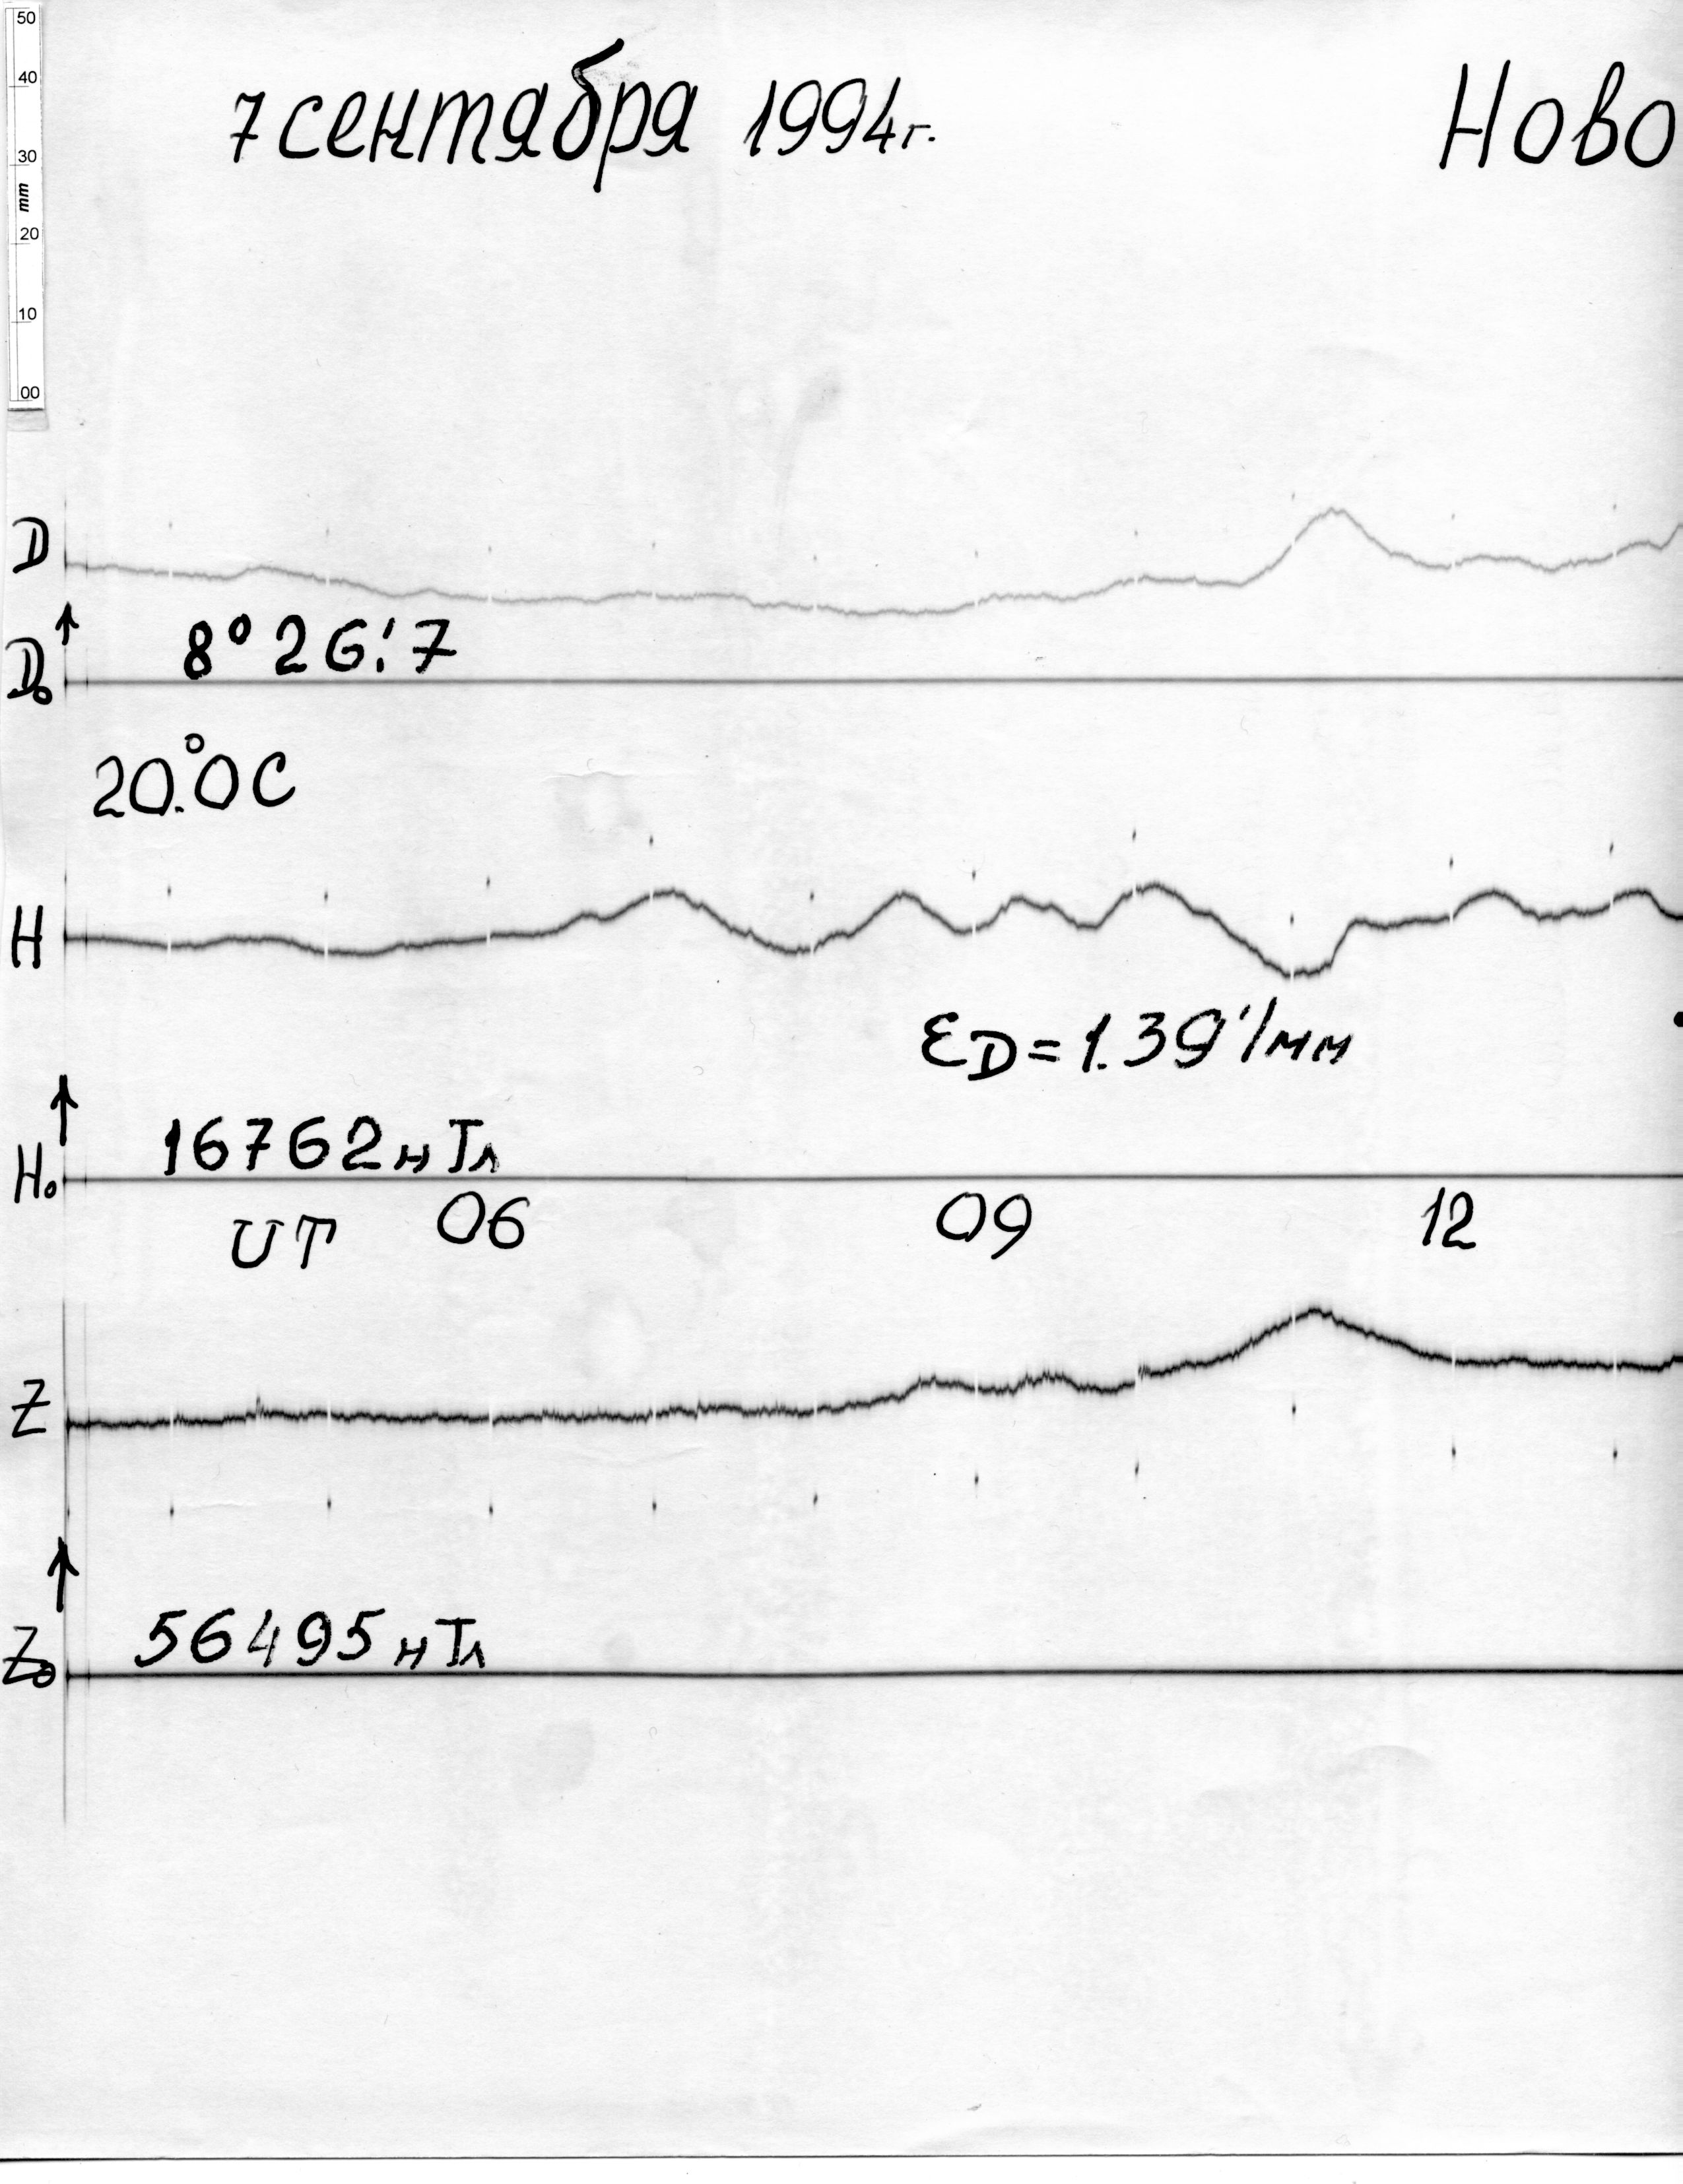 50
40
30
mm
20
10
00
7 сентября 1994г.
Ново
D
8° 26.'7
D₀
20.°0 C
H
ƐD = 1.39'/мм
16762 нТл
H₀
UT 06 09 12
Z
56495 нТл
Z₀